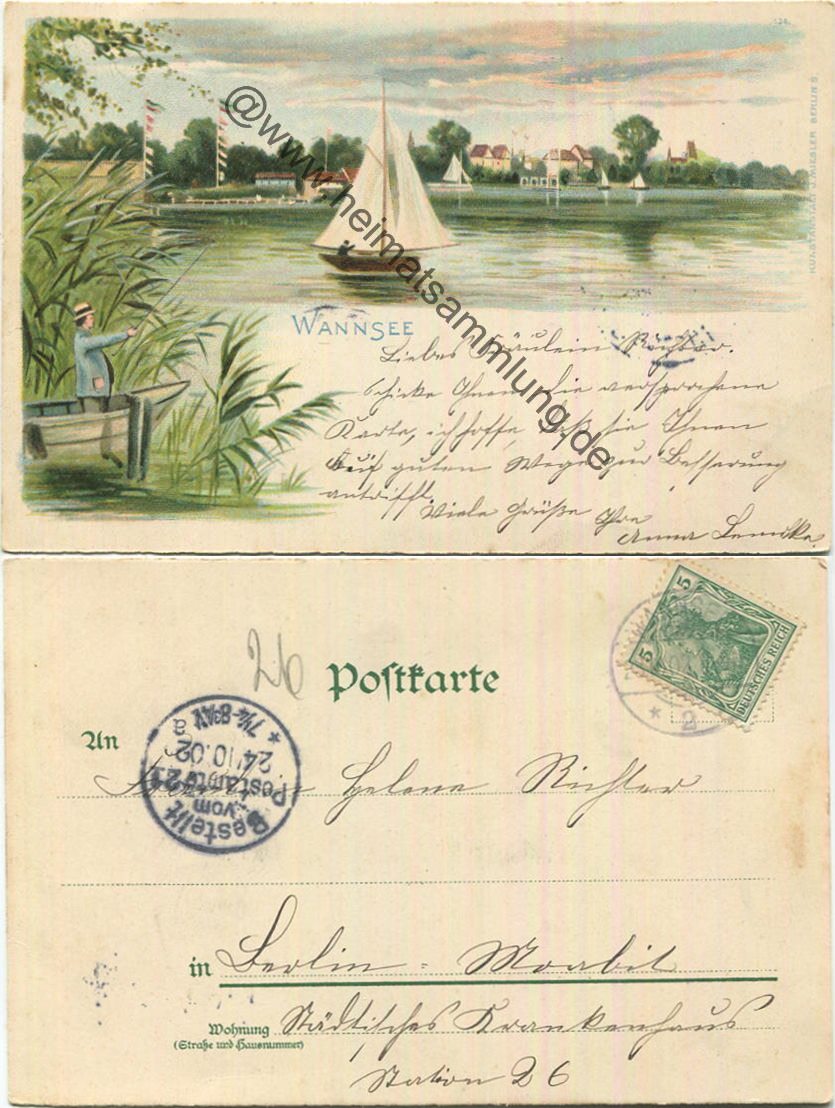 124.
KUNSTANSTALT J. MIESLER BERLIN S.
@www.heimatsammlung.de
WANNSEE
Liebes Fräulein Richter.
schicke Ihnen die versprochene
Karte, ich hoffe, daß sie Ihnen
auf guten Wege zur Besserung
antrifft.
Viele Grüße Ihre
Anna Lemcke.
5
5
DEUTSCHES REICH
* 2
26
Postkarte
Bestellt
vom
Postamte 21
24.10.02
* 7¼-8¾V
a
An
Fräulein Helene Richter
in Berlin = Moabit
Wohnung Städtisches Krankenhaus
(Straße und Hausnummer)
Station 26